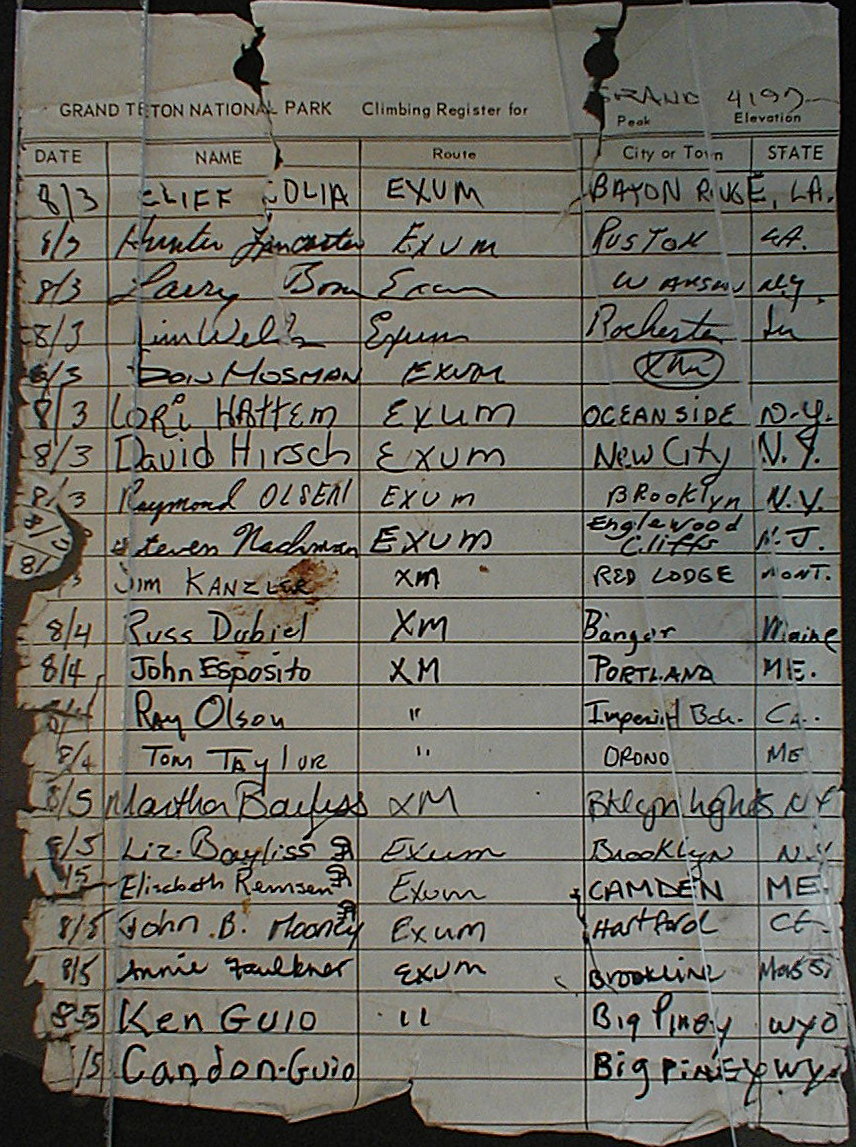 GRAND TETON NATIONAL PARK Climbing Register for GRAND 4197
Peak Elevation
DATE NAME Route City or Town STATE
8/3 CLIFF OLIA EXUM BAYON RUGE, LA.
8/3 Hunter Lancaster EXUM RUSTON LA.
8/3 Larry Exum N.Y.
8/3 Jim Exum Rochester
8/3 DON MOSMAN EXUM
8/3 LORi HATTEM EXUM OCEANSIDE N.Y.
8/3 David Hirsch EXUM New City N.Y.
8/3 Raymond OLSEN EXUM BROOKlyn N.Y.
8/4 Steven Nachman EXUM Englewood Cliffs N.J.
JIM KANZLER XM RED LODGE MONT.
8/4 Russ Dubiel XM Bangor Maine
8/4 John Esposito XM PORTLAND ME.
Ray Olson " Imperial Bch. CA.
8/4 TOM TAYLOR " ORONO ME
8/5 Martha Bayliss XM Bklyn hghts NY
8/5 Liz Bayliss Exum Brooklyn N.Y
Elisabeth Remsen Exum CAMDEN ME.
8/5 John B. Mooney Exum Hartford Ct.
8/5 Annie Faulkner EXUM BROOKLINE Mass
8-5 Ken Guio " Big Piney WYO
/5 Candon-Guio Big PINEY WY